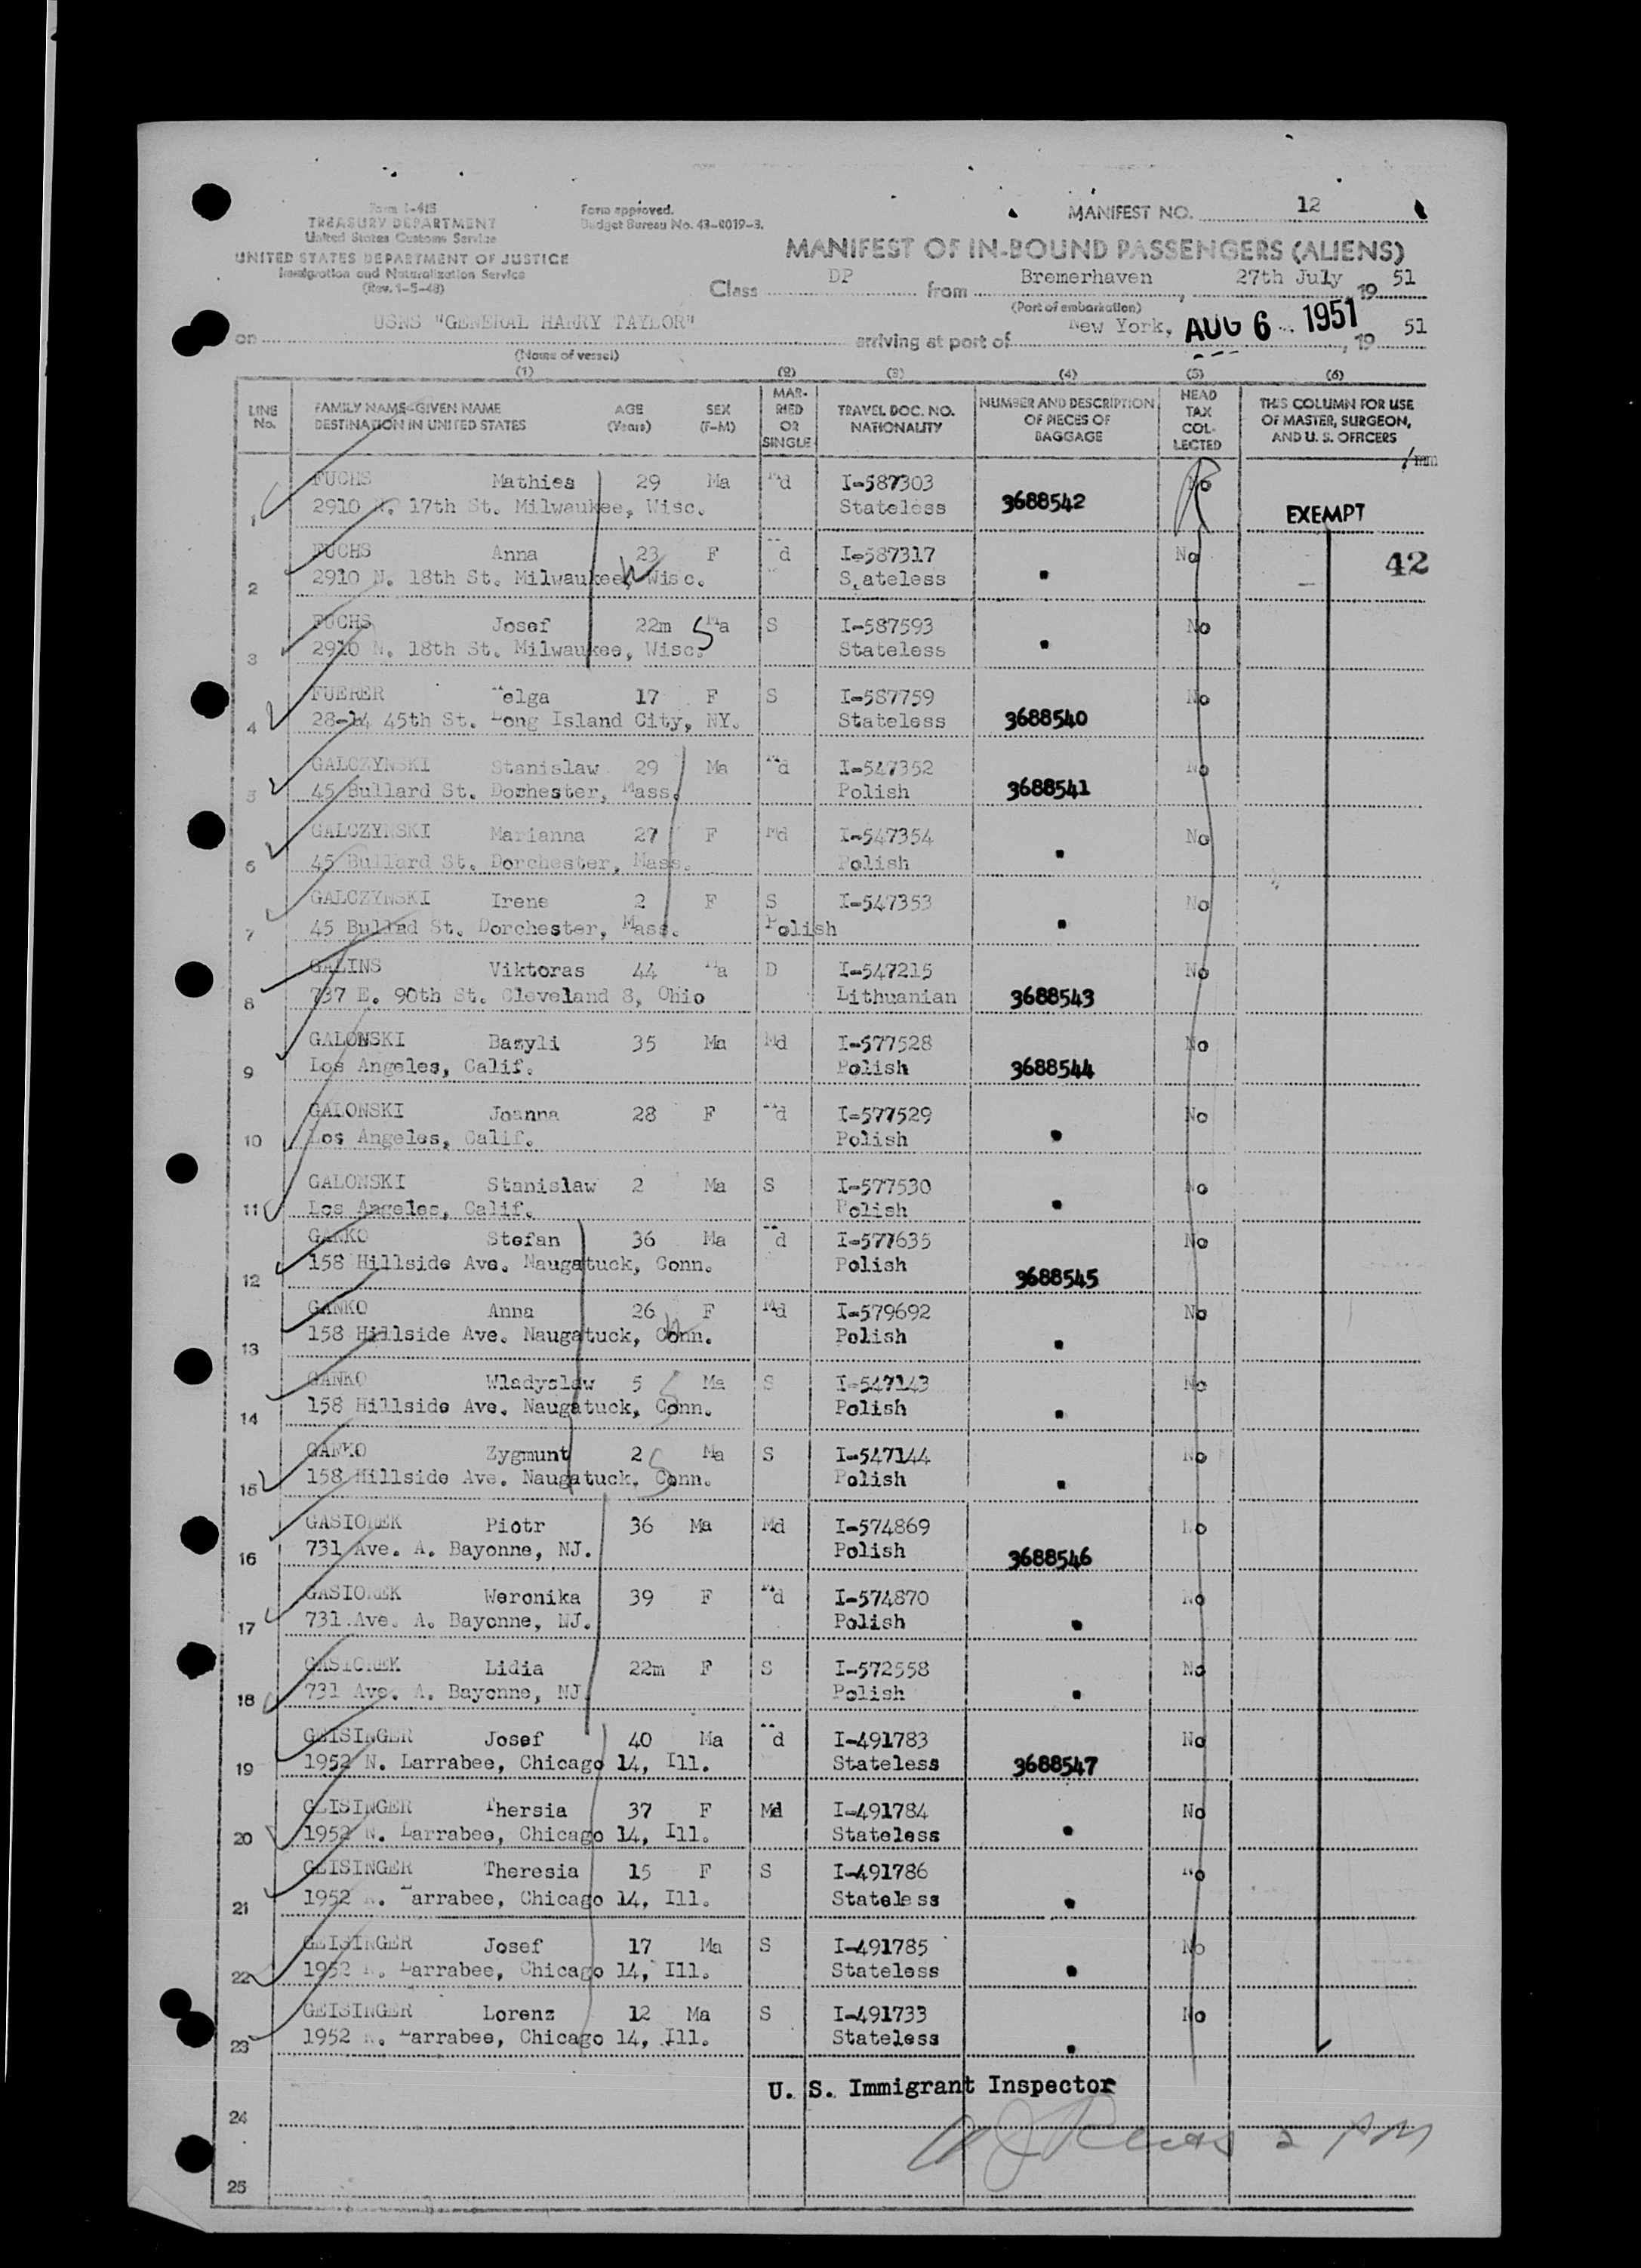 Form I-415
TREASURY DEPARTMENT
United States Customs Service
UNITED STATES DEPARTMENT OF JUSTICE
Immigration and Naturalization Service
(Rev. 1-5-48)
Form approved.
Budget Bureau No. 43-R019-3.
MANIFEST NO. 12
MANIFEST OF IN-BOUND PASSENGERS (ALIENS)
Class DP from Bremerhaven, 27th July, 19 51
(Port of embarkation)
on USNS "GENERAL HARRY TAYLOR" arriving at port of New York, AUG 6 1951, 19 51
(Name of vessel)
(1) (2) (3) (4) (5) (6)
LINE No. FAMILY NAME-GIVEN NAME DESTINATION IN UNITED STATES AGE (Years) SEX (F-M) MAR-RIED OR SINGLE TRAVEL DOC. NO. NATIONALITY NUMBER AND DESCRIPTION OF PIECES OF BAGGAGE HEAD TAX COL-LECTED THIS COLUMN FOR USE OF MASTER, SURGEON, AND U. S. OFFICERS
1 FUCHS Mathies 29 Ma Md I-587303 No
2910 N. 17th St. Milwaukee, Wisc. Stateless 3688542 EXEMPT
2 FUCHS Anna 23 F d I-587317 No 42
2910 N. 18th St. Milwaukee, Wisc. S.ateless "
3 FUCHS Josef 22m Ma S I-587593 No
2910 N. 18th St. Milwaukee, Wisc. Stateless "
4 FUERER Helga 17 F S I-587759 No
28-14 45th St. Long Island City, NY. Stateless 3688540
5 GALCZYNSKI Stanislaw 29 Ma Md I-547352 No
45 Bullard St. Dorchester, Mass. Polish 3688541
6 GALCZYNSKI Marianna 27 F Md I-547354 No
45 Bullard St. Dorchester, Mass. Polish "
7 GALCZYNSKI Irene 2 F S I-547353 No
45 Bullad St. Dorchester, Mass. Polish "
8 GALINS Viktoras 44 Ma D I-547215 No
737 E. 90th St. Cleveland 8, Ohio Lithuanian 3688543
9 GALONSKI Bazyli 35 Ma Md I-577528 No
Los Angeles, Calif. Polish 3688544
10 GALONSKI Joanna 28 F Md I-577529 No
Los Angeles, Calif. Polish "
11 GALONSKI Stanislaw 2 Ma S I-577530 No
Los Angeles, Calif. Polish "
12 GANKO Stefan 36 Ma d I-577635 No
158 Hillside Ave. Naugatuck, Conn. Polish 3688545
13 GANKO Anna 26 F Md I-579692 No
158 Hillside Ave. Naugatuck, Conn. Polish "
14 GANKO Wladyslaw 5 Ma S I-547143 No
158 Hillside Ave. Naugatuck, Conn. Polish "
15 GANKO Zygmunt 2 Ma S I-547144 No
158 Hillside Ave. Naugatuck. Conn. Polish "
16 GASIOREK Piotr 36 Ma Md I-574869 No
731 Ave. A. Bayonne, NJ. Polish 3688546
17 GASIOREK Weronika 39 F Md I-574870 No
731 Ave. A. Bayonne, NJ. Polish "
18 GASIOREK Lidia 22m F S I-572558 No
731 Ave. A. Bayonne, NJ Polish "
19 GEISINGER Josef 40 Ma d I-491783 No
1952 N. Larrabee, Chicago 14, Ill. Stateless 3688547
20 GEISINGER Thersia 37 F Md I-491784 No
1952 N. Larrabee, Chicago 14, Ill. Stateless "
21 GEISINGER Theresia 15 F S I-491786 No
1952 N. Larrabee, Chicago 14, Ill. Stateless "
22 GEISINGER Josef 17 Ma S I-491785 No
1952 N. Larrabee, Chicago 14, Ill. Stateless "
23 GEISINGER Lorenz 12 Ma S I-491733 No
1952 N. Larrabee, Chicago 14, Ill. Stateless "
U. S. Immigrant Inspector
24
25